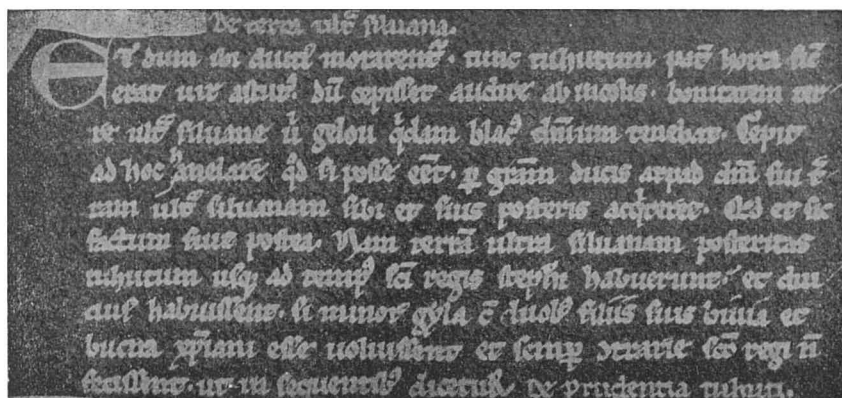 De terra ultͬ siluana.
Et dum ibi diuciꝰ morarentᷣ. tunc tuhutum patᷣ horca sic̄
erat uir astutꝰ. dū cepisset audire ab incolis. bonitatem ter
re ultᷣ siluane ū gelou q̇dam blacꝰ dn̄ium tenebat. Cepit
ad hoc hanelare qd̓ si posse eēt. ꝑ gr̄am ducis arpad dn̄i sui t̄
ram ultᷣ siluanam sibi et suis posteris acq̇reret. Qd̓ et sic
factum fuit postea. Nam terrā ultra siluanam posteritas
tuhutum usqꝫ ad tempꝰ sc̄i regis stephi habuerunt. et diu
ciuꝰ habuissent. si minor gyla c̄ duobꝰ filiis suis biuia et
bucna xp̄iani esse uoluissent et semꝑ ꝯtrarie sc̄o regi n̄
fecissent. ut in sequentibꝰ dicetur De prudentia tuhuti.